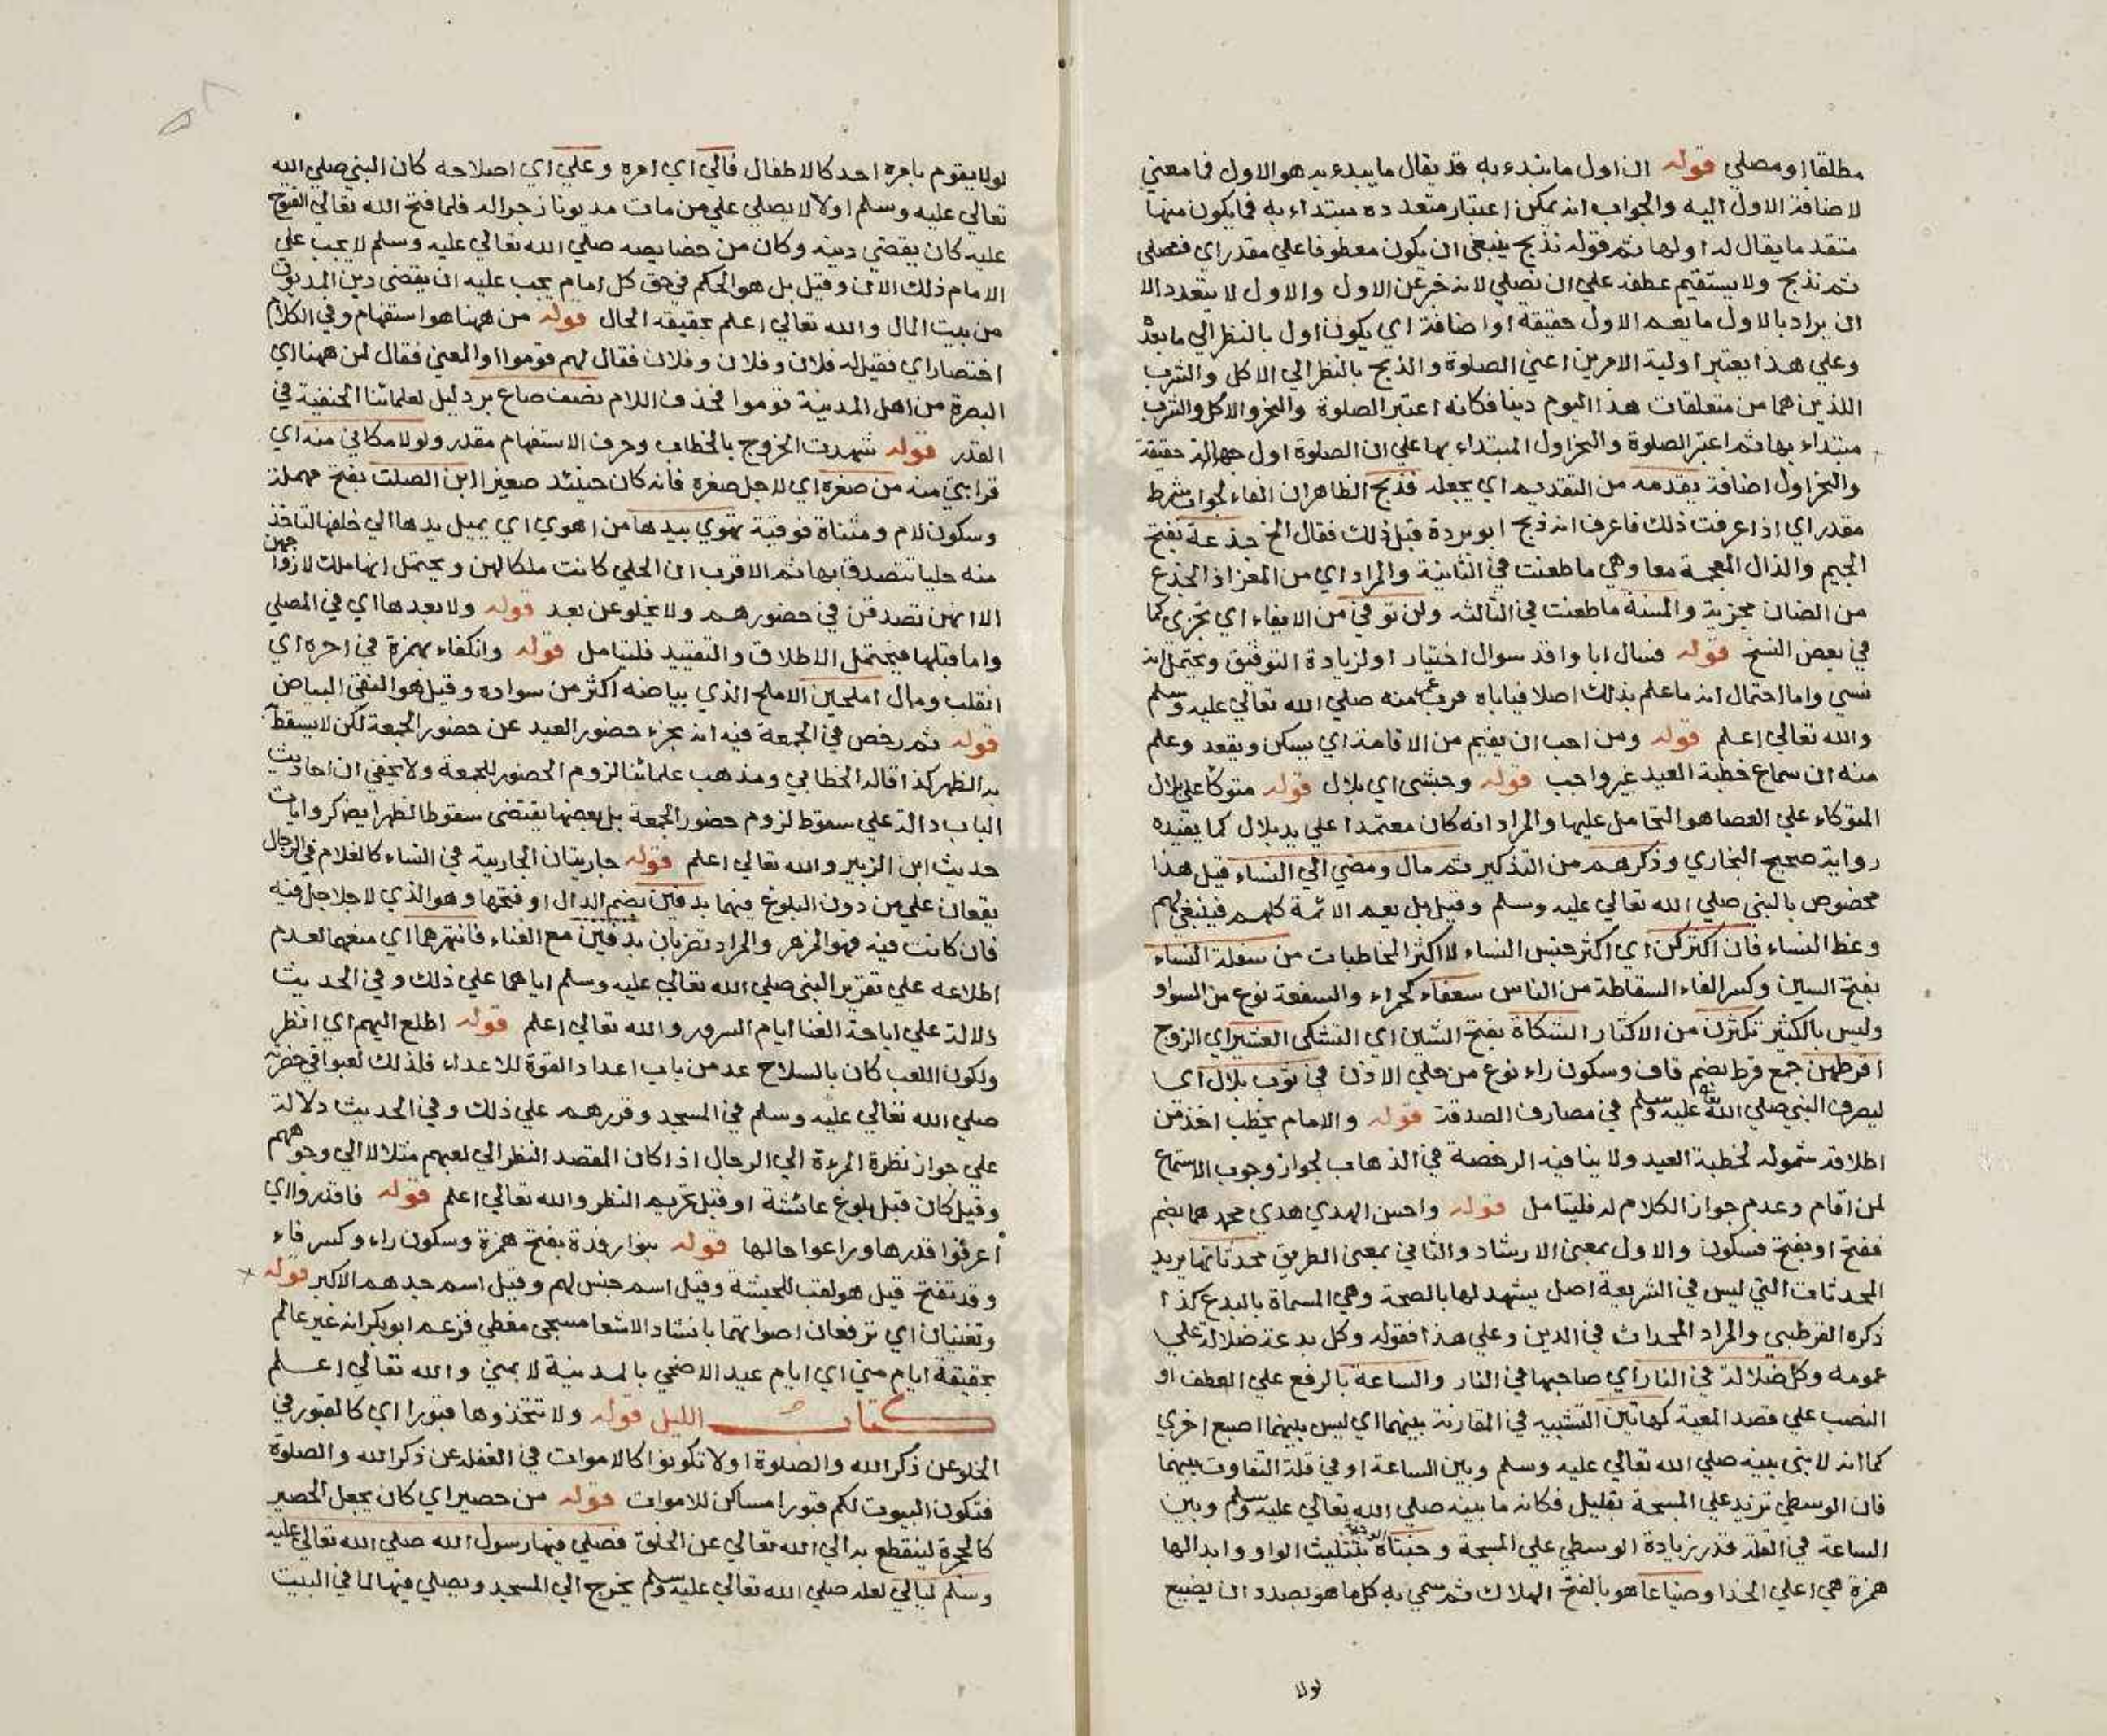 مطلقا او مصلي قوله ان اول ما نبدء به قد يقال ما يبدء به هو الاول فما معني
لاضافة الاول اليه والجواب انه يمكن اعتبار متعدده مبتداء به فما يكون منها
متقدما يقال له اولها ثم قوله نذبح ينبغي ان يكون معطوفا علي مقدر اي فنصلي
ثم نذبح ولا يستقيم عطفه علي ان نصلي لانه خبر عن الاول والاول لا يتعدد الا
ان يراد بالاول ما يعم الاول حقيقة او اضافة اي يكون اول بالنظر الي ما بعده
وعلي هذا يعتبر اولية الامرين اعني الصلوة والذبح بالنظر الي الاكل والشرب
اللذين هما من متعلقات هذا اليوم دينا فكانه اعتبر الصلوة والنحر والاكل والشرب
مبتداء بها ثم اعتبر الصلوة والنحر اول المبتداء بها علي ان الصلوة اول حقيقة
والنحر اول اضافة نقدمه من التقديم اي يجعله فذبح الظاهر ان الفاء لجواب شرط
مقدر اي اذا عرفت ذلك فاعرف انه ذبح ابو بردة قبل ذلك فقال الخ جذعة بفتح
الجيم والذال المعجمة معا وهي ما طعنت في الثانية والمراد اي من المعز اذ الجذع
من الضان مجزية والمسنة ما طعنت في الثالثه ولن توفي من الايفاء اي تجزي كما
في بعض النسخ قوله فسال ابا واقد سوال اختبار او لزيادة التوفيق ويحتمل انه
نسي واما احتمال انه ما علم بذلك اصلا فياباه قرب منه صلي الله تعالي عليه وسلم
والله تعالي اعلم قوله ومن احب ان يقيم من الاقامة اي يسكن ويقعد وعلم
منه ان سماع خطبة العيد غير واجب قوله وحبشي اي بلال قوله متوكأ علي بلال
التوكاء علي العصا هو التحامل عليها والمراد انه كان معتمدا علي يد بلال كما يفيده
رواية صحيح البخاري وذكرهم من التذكير ثم مال ومضي الي النساء قيل هذا
مخصوص بالنبي صلي الله تعالي عليه وسلم وقيل بل يعم الائمة كلهم فينبغي لهم
وعظ النساء فان اكثركن اي اكثر جنس النساء لا اكثر المخاطبات من سفلة النساء
بفتح السين وكسر الفاء السقاطة من الناس سعفاء كحمراء والسفعة نوع من السواد
وليس بالكثير تكثرن من الاكثار الشكاة بفتح الشين اي التشكي العشير اي الزوج
اقرطهن جمع قرط بضم قاف وسكون راء نوع من حلي الاذن في ثوب بلال اي
ليصرف النبي صلي الله تعالي عليه وسلم في مصارف الصدقة قوله والامام يخطب اخذ من
اطلاقه شموله لخطبة العيد ولا ينافيه الرخصة في الذهاب لجواز وجوب الاستماع
لمن اقام وعدم جواز الكلام له فليتامل قوله واحسن الهدي هدي محمد هما بضم
ففتح او بفتح فسكون والاول بمعني الارشاد والثاني بمعني الطريق محدثاتها يريد
المحدثات التي ليس في الشريعة اصل يشهد لها بالصحة وهي المسماة بالبدع كذا
ذكره القرطبي والمراد المحداث في الدين وعلي هذا فقوله وكل بدعة ضلالة علي
عمومه وكل ضلالة في النار اي صاحبها في النار والساعة بالرفع علي العطف او
النصب علي قصد المعية كهاتين التشبيه في المقارنة بينهما اي ليس بينهما اصبع اخري
كما انه لا نبي بينه صلي الله تعالي عليه وسلم وبين الساعة او في قلة التفاوت بينهما
فان الوسطي تزيد علي المسبحة بقليل فكانه ما بينه صلي الله تعالي عليه وسلم وبين
الساعة في القلة قدر زيادة الوسطي علي المسبحة وجنتاه بتثليث الواو وابدالها
همزة هي اعلي الخد او ضياعا هو بالفتح الهلاك ثم سمي به كل ما هو بصدد ان يضيع
لولا
لولا يقوم بامره احد كالاطفال فالي اي امره وعلي اي اصلاحه كان النبي صلي الله
تعالي عليه وسلم اولا لا يصلي علي من مات مديونا زجرا له فلما فتح الله تعالي الفتوح
عليه كان يقضي دينه وكان من خصايصه صلي الله تعالي عليه وسلم لا يجب علي
الامام ذلك الان وقيل بل هو الحكم في حق كل امام يجب عليه ان يقضي دين المديون
من بيت المال والله تعالي اعلم بحقيقة الحال قوله من ههنا هو استفهام وفي الكلام
اختصار اي فقيل له فلان وفلان وفلان فقال لهم قوموا او المعني فقال لمن ههنا اي
البصرة من اهل المدينة قوموا فحذف اللام نصف صاع بر دليل لعلمائنا الحنفية في
القدر قوله شهدت الخروج بالخطاب وحرف الاستفهام مقدر ولولا مكاني منه اي
قرابتي منه من صغره اي لاجل صغره فانه كان حينئذ صغيرا ابن الصلت بفتح مهملة
وسكون لام ومثناة فوقية تهوي بيدها من اهوي اي يميل يدها الي خلفها لتاخذ
منه حليا تتصدق بها ثم الاقرب ان الحلي كانت ملكا لهن ويحتمل انها ملك لازواجهن
الا انهن تصدقن في حضورهم ولا يخلو عن بعد قوله ولا بعدها اي في المصلي
واما قبلها فيحتمل الاطلاق والتقييد فليتامل قوله وانكفاء بهمزة في اخره اي
انقلب ومال املحين الاملح الذي بياضه اكثر من سواده وقيل هو النقي البياض
قوله ثم رخص في الجمعة فيه انه يجزء حضور العيد عن حضور الجمعة لكن لا يسقط
به الظهر كذا قاله الخطابي ومذهب علمائنا لزوم الحضور للجمعة ولا يخفي ان احاديث
الباب دالة علي سقوط لزوم حضور الجمعة بل بعضها يقتضي سقوط الظهر ايضا كروايات
حديث ابن الزبير والله تعالي اعلم قوله جاريتان الجارية في النساء كالغلام في الرجال
يقعان علي من دون البلوغ فيهما بدفين بضم الدال او فتحها وهو الذي لا جلاجل فيه
فان كانت فيه فهو المزهر والمراد تضربان بدفين مع الغناء فانتهرهما اي منعهما لعدم
اطلاعه علي تقرير النبي صلي الله تعالي عليه وسلم اياهما علي ذلك وفي الحديث
دلالة علي اباحة الغنا ايام السرور والله تعالي اعلم قوله اطلع اليهم اي انظر
ولكون اللعب كان بالسلاح عد من باب اعداد القوة للاعداء فلذلك لعبوا في حضرته
صلي الله تعالي عليه وسلم في المسجد وقررهم علي ذلك وفي الحديث دلالة
علي جواز نظرة المرءة الي الرجال اذا كان المقصد النظر الي لعبهم مثلا لا الي وجوههم
وقيل كان قبل بلوغ عائشة او قبل تحريم النظر والله تعالي اعلم قوله فاقدروا اي
اعرفوا قدرها وراعوا حالها قوله بنوا رفدة بفتح همزة وسكون راء وكسر فاء
وقد تفتح قيل هو لقب للحبشة وقيل اسم جنس لهم وقيل اسم جدهم الاكبر قوله
وتغنيان اي ترفعان اصواتهما بانشاد الاشعا مسجي مغطي فزعم ابو بكر انه غير عالم
بحقيقة ايام مني اي ايام عيد الاضحي بالمدينة لا بمني والله تعالي اعلم
كتاب الليل قوله ولا تتخذوها قبورا اي كالقبور في
الخلو عن ذكر الله والصلوة او لا تكونوا كالاموات في الغفلة عن ذكر الله والصلوة
فتكون البيوت لكم قبورا مساكن للاموات قوله من حصير اي كان يجعل الحصير
كالحجرة لينقطع به الي الله تعالي عن الخلق فصلي فيها رسول الله صلي الله تعالي عليه
وسلم ليالي لعله صلي الله تعالي عليه وسلم يخرج الي المسجد ويصلي فيها لما في البيت